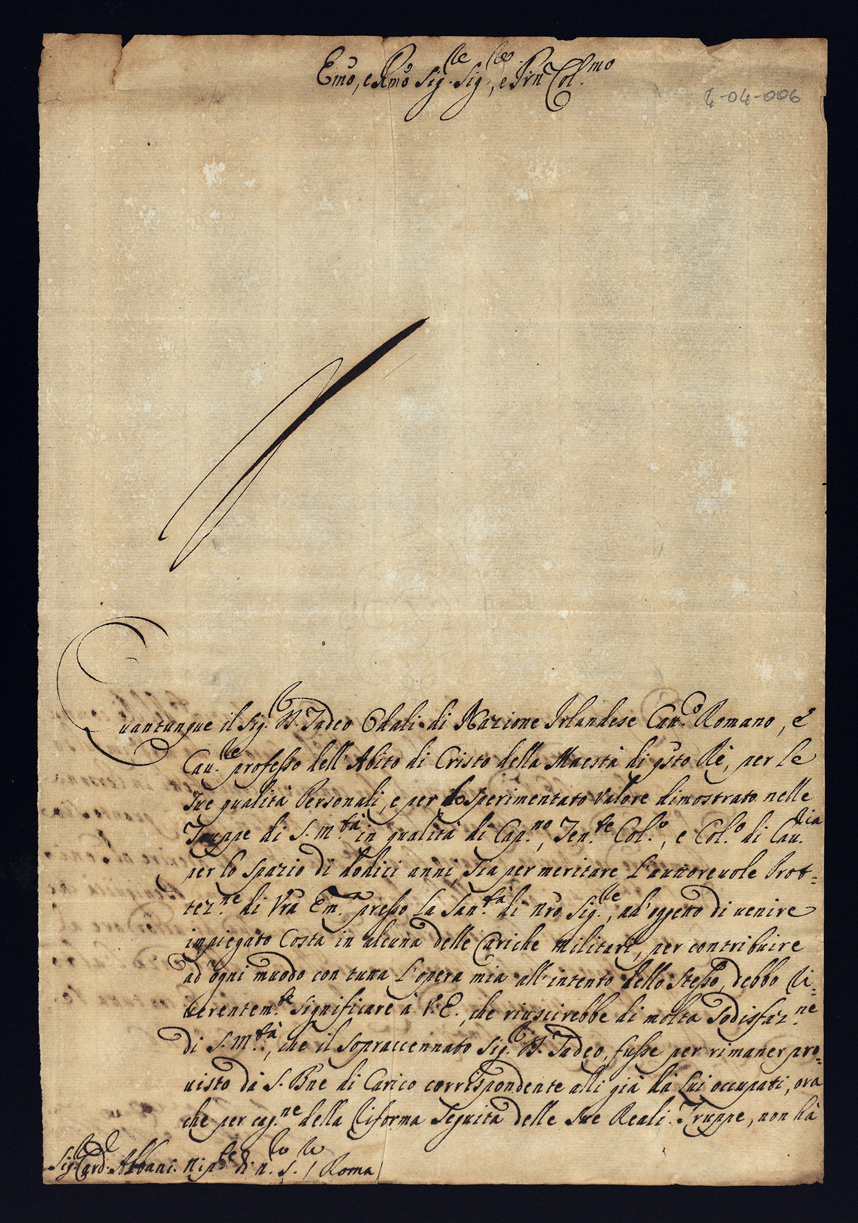 Emo, e Rmo Sig.re Sig.re, e Prn Col.mo
4-04-006
Quantunque il Sig.r D. Tadeo Ohali di Nazione Irlandese Cau.o Romano, è
Cau.re professo dell'Abito di Cristo della Maestà di qsto Rè, per le
sue qualità Personali, e per lo sperimentato valore dimostrato nelle
Truppe di S. M.tà in qualità di Cap.no, Ten.te Col.o, e Col.o di Cau.lia
per lo spazio di dodici anni sia per meritare l'auttoreuole Prot-
tez.ne di Vrã Em.a presso la San.tà di nro Sig.re, ad'oggetto di uenire
impiegato Costà in alcuna delle Cariche militari, per contribuire
ad ogni muodo con tutta l'opera mia all'intento dello stesso, debbo Ri-
uerentem.te significare à V.E., che riuscirebbe di molta Sodisfaz.ne
di S. M.tà, che il sopraccennato Sig.r D. Tadeo, fusse per rimaner pro-
uisto da S. Bne di Carico corrispondente alli già da Lui occupati, ora
che per cag.ne della Riforma seguita delle Sue Reali Truppe, non hà
Sig.r Card.l Albani Nip.te di n.ro S.re (Roma)